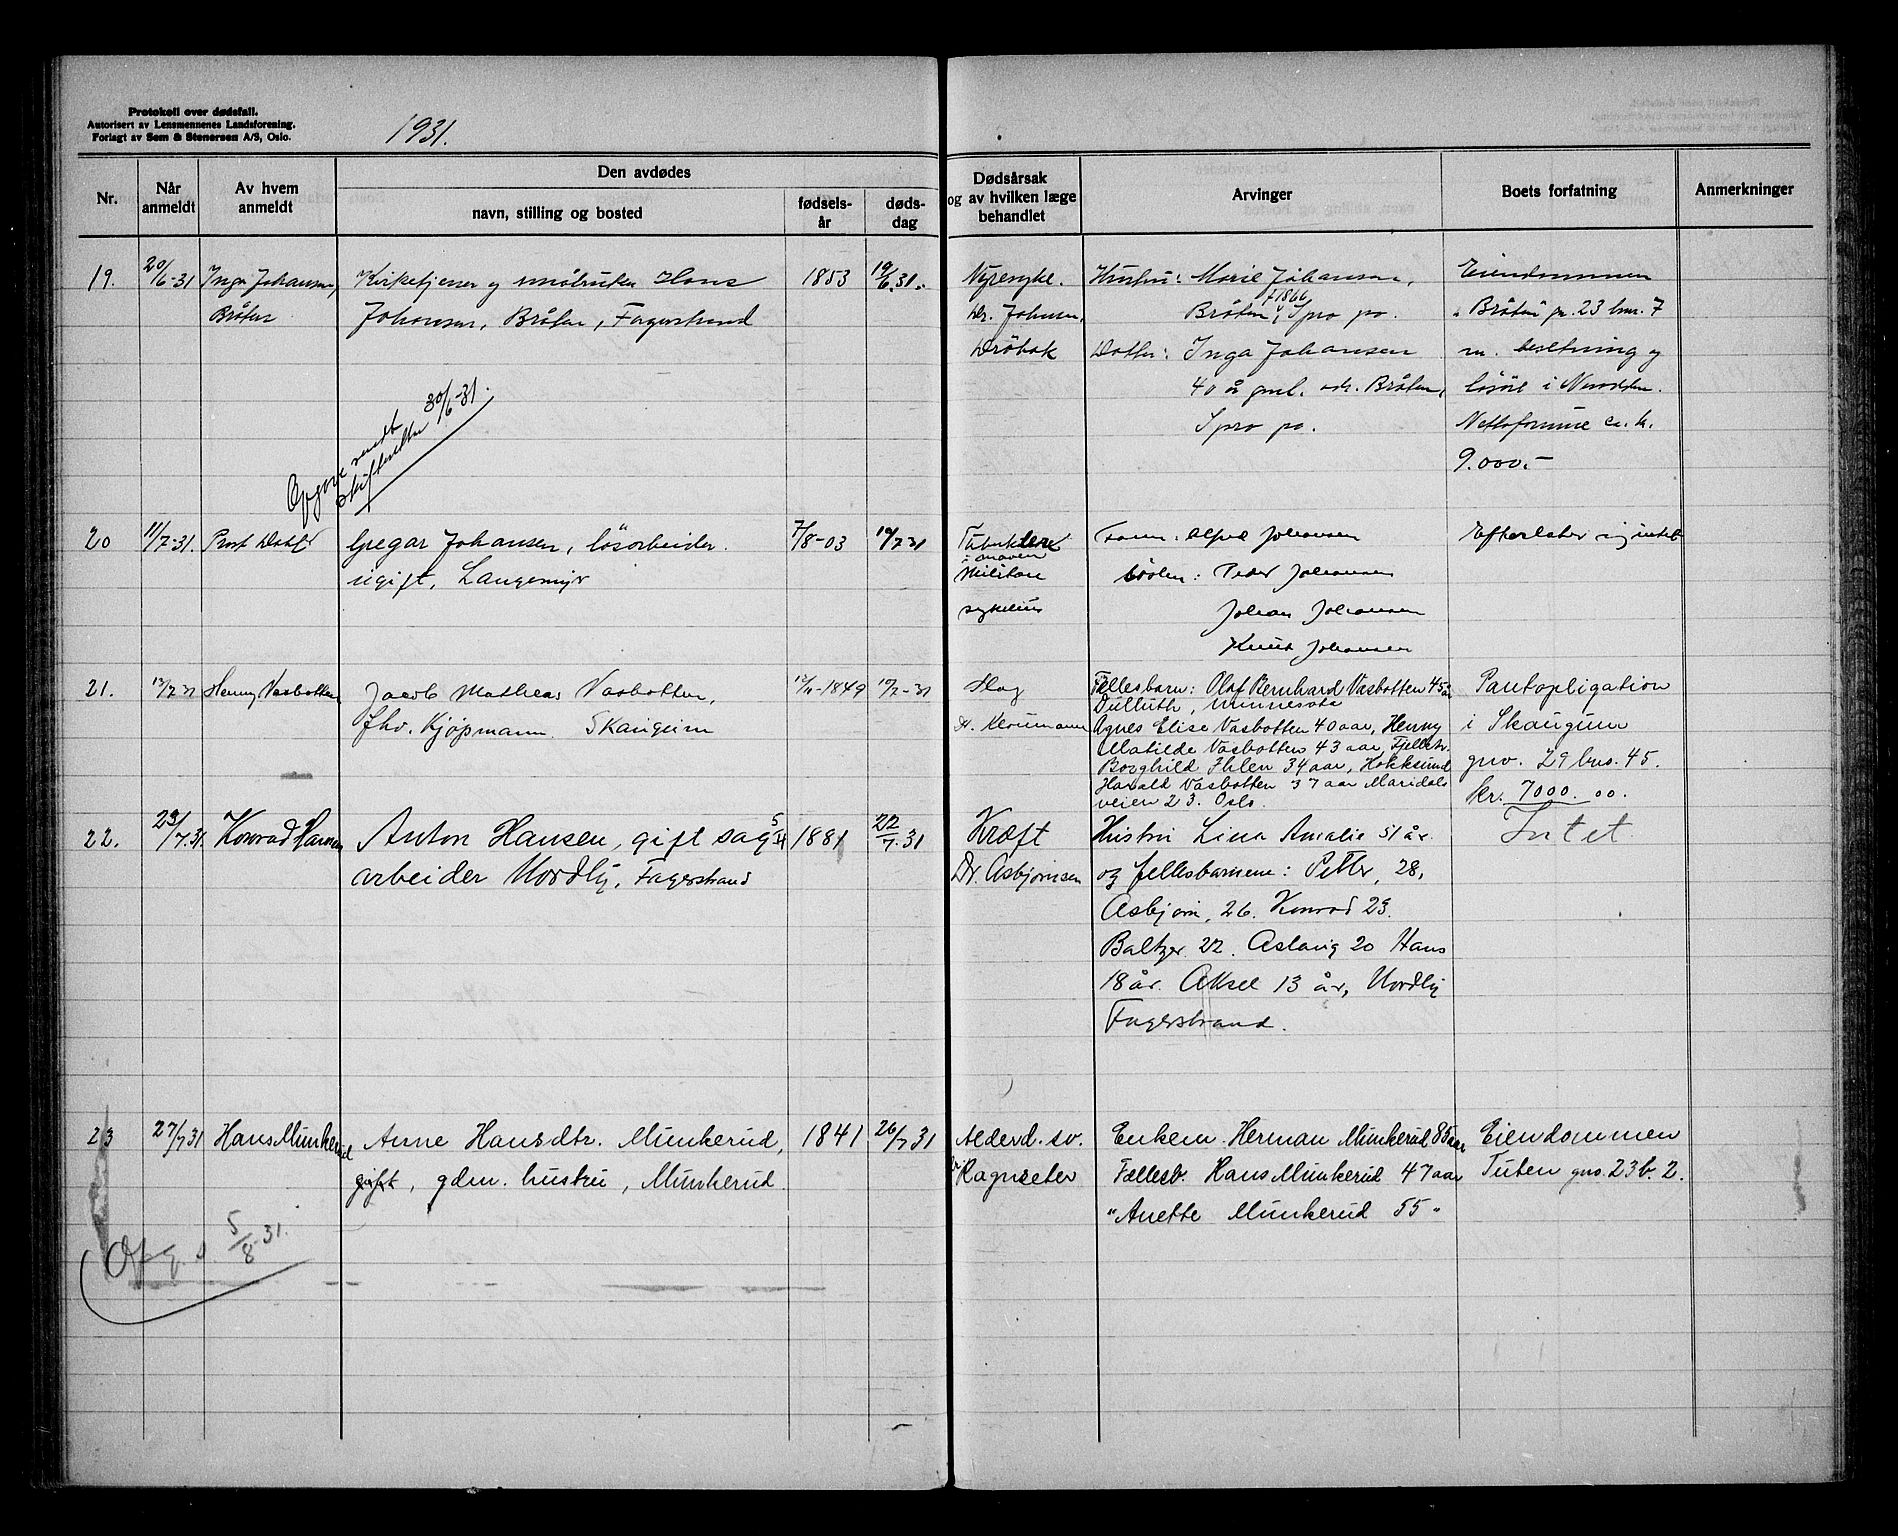 Protokoll over dødsfall.
Autorisert av Lensmennenes Landsforening.
Forlagt av Sem & Stenersen A/S, Oslo.
1931.
Nr.
Når anmeldt
Av hvem anmeldt
Den avdødes
navn, stilling og bosted
fødselsår
dødsdag
Dødsårsak og av hvilken læge behandlet
Arvinger
Boets forfatning
Anmerkninger
19. 20/6-31 Inga Johansen, Kirketjener og Hans 1853 19/6.31. Nyresyke. Hustru: Marie Johansen, Eiendommen
Bråten Johansen, Bråten, Fagerstrand Dr. Johnsen, Bråten, f 1866, Spro po. "Bråten" gr. 23 bnr. 7
Drøbak Datter: Inga Johansen m. besetning og
40 år gml. adr. Bråten, løsøre i Nesodden.
Spro po. Nettoformue ca. kr.
9.000.-
Opgave sendt
skifteretten 30/6-31.
20 11/7-31. Gregar Johansen, løsarbeider. 7/8-03 10/7 31 Tuberkulose Alfred Johansen Efterlater sig intet
ugift, Langemyr i maven
Militære Søsken: Peder Johansen
sykehus Johan Johansen
Knut Johansen
21. 13/7 31 Henny Vasbotten Jacob Mathias Vasbotten, 1849 -31 Slag Fellesbarn: Olaf Bernhard Vasbotten 45 år Pantopligation
fhv. Kjøpmann. Skaugum Duluth, Minnesota i Skaugum
Agnes Elise Vasbotten 40 aar, Henny gnr. 29 bns. 45.
Matilde Vasbotten 43 aar, Fjellstr. kr. 7000.00.
Borghild Ihlen 34 aar, Hokksund
Harald Vasbotten 37 aar Maridalsveien 23. Oslo.
22. 23/7.31. Konrad Hansen Anton Hansen, gift sag 1881 22/7.31 Kræft Hustru Lina Amalie 51 år. Intet
arbeider Nordly, Fagerstrand Dr. Asbjørnsen og fellesbarnene: Petter, 28,
Asbjørn, 26. Konrad 23.
Baltzer 22. Aslaug 20 Hans
18 år. Aksel 13 år, Nordly
Fagerstrand.
23 27/7 31 Hans Munkerud Anne Hansdtr. Munkerud, 1841 26/7 31 Alderd. sv. Enkem. Herman Munkerud 85 aar Eiendommen
gift, gdm. hustru, Munkerud. Ragnseter Fællesb. Hans Munkerud 47 aar Tuten gns. 23 b. 2.
" Anette Munkerud 55 "
Opg. s. 5/8-31.